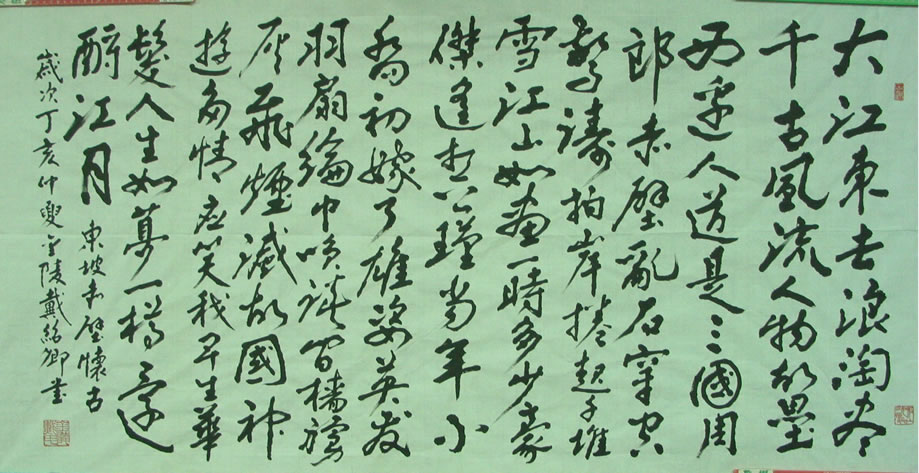 大江东去浪淘尽
千古風流人物故壘
西邊人道是三國周
郎赤壁亂石穿空
驚濤拍岸捲起千堆
雪江山如畫一時多少豪
傑遙想公瑾當年小
喬初嫁了雄姿英发
羽扇綸巾咲談間檣艣
灰飛煙滅故國神
遊多情应笑我早生華
髮人生如夢一樽還
酹江月
東坡赤壁懷古
歲次丁亥仲夏金陵戴紹卿書